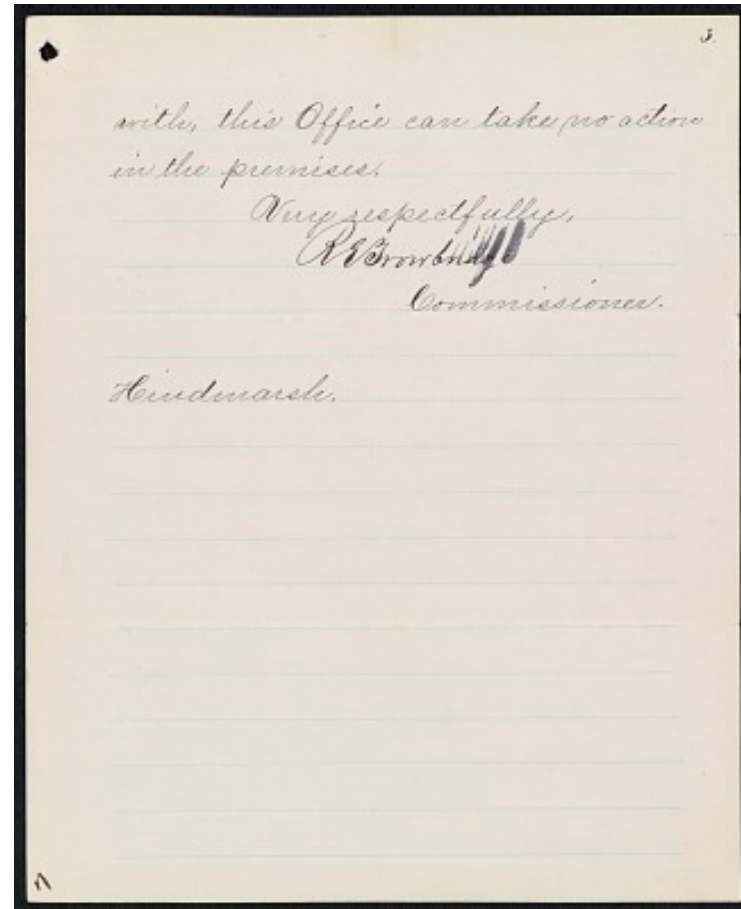 3.
with, this Office can take no action
in the premises.
Very respectfully,
R E Trowbridge
Commissioner.
Hindmarsh.